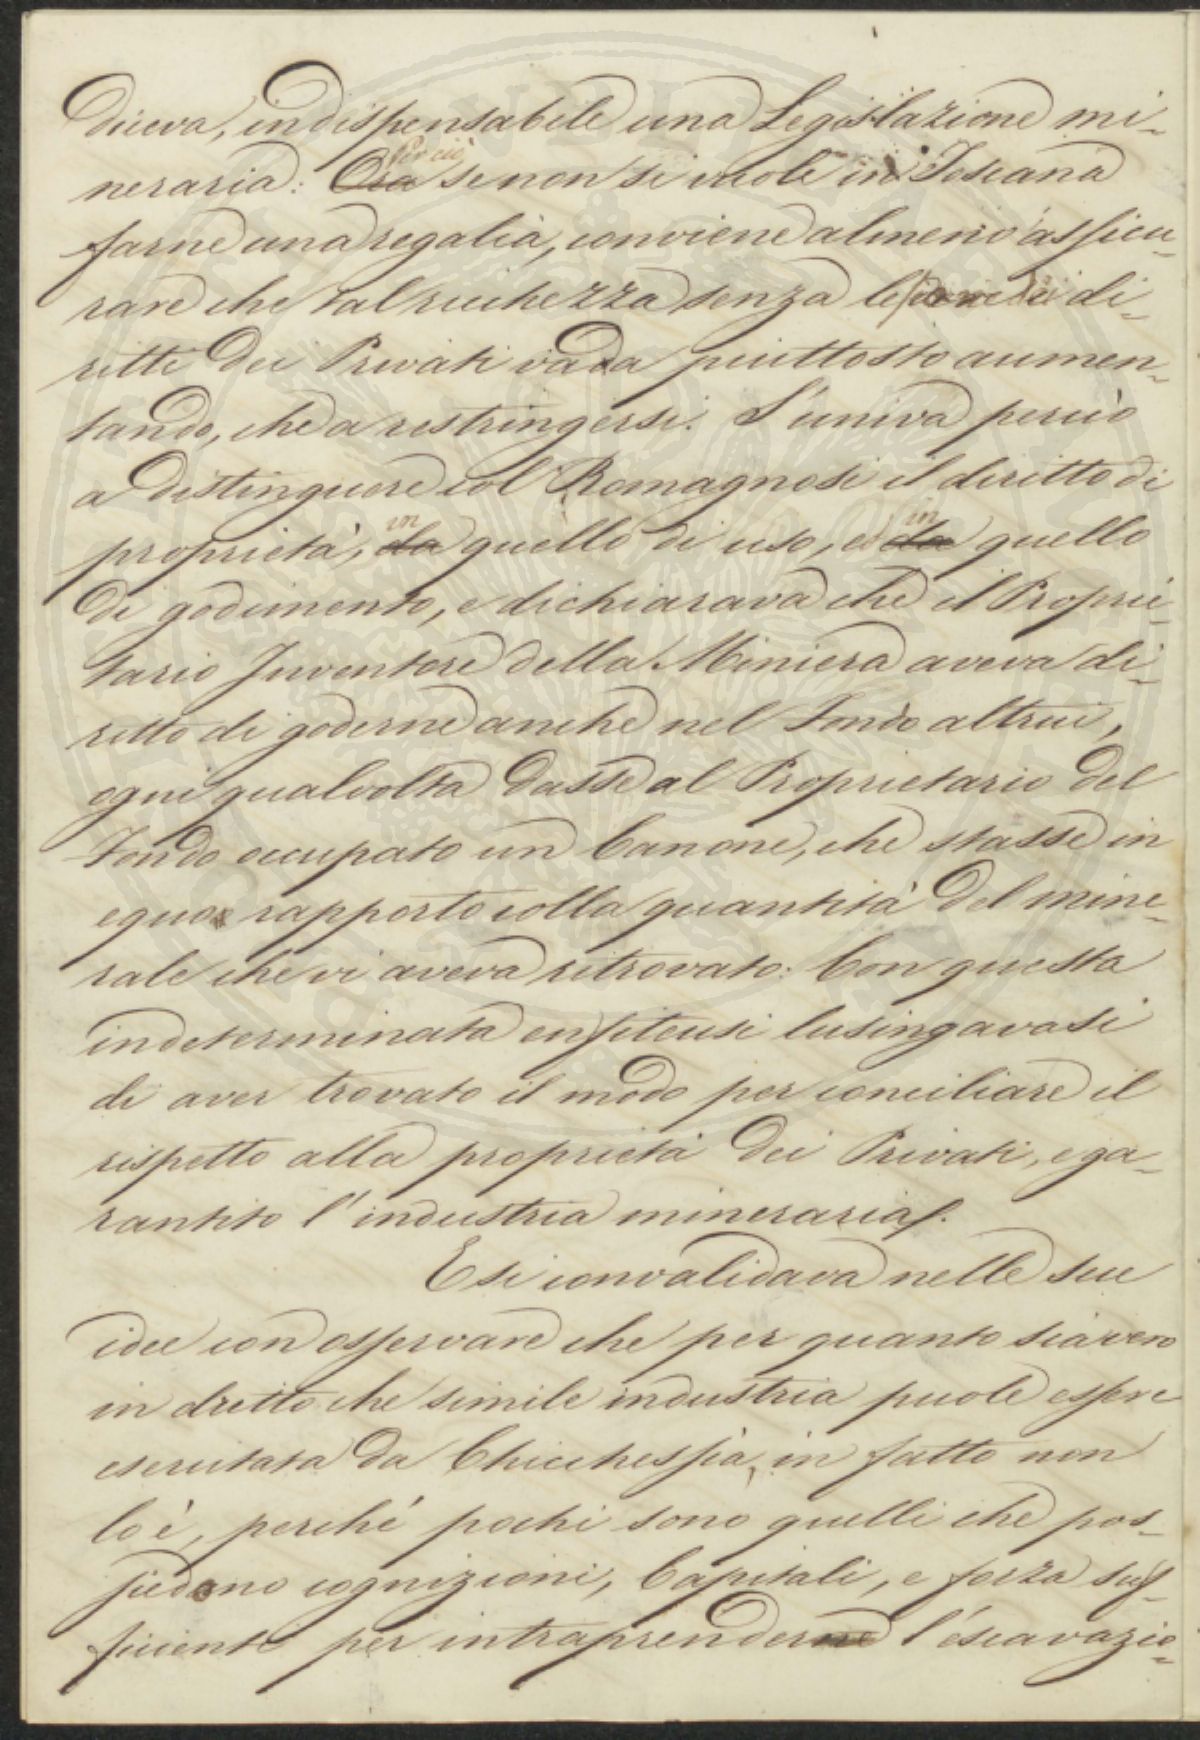 diceva, indispensabile una Legislazione mi-
neraria: Perciò se non si vuole in Toscana
farne una regalia, conviene almeno assicu-
rare che tal ricchezza senza lesione dei di-
ritti dei Privati vada piuttosto aumen-
tando, che a restringersi. S'univa perciò
a distinguere col Romagnosi il diritto di
proprietà, in quello di uso, e in quello
di godimento, e dichiarava che il Proprie-
tario Inventore della Miniera aveva di-
ritto di goderne anche nel Fondo altrui,
ogni qualvolta dasse al Proprietario del
Fondo occupato un Canone, che stasse in
equo rapporto colla quantità del mine-
rale che vi aveva ritrovato: Con questa
indeterminata enfiteusi lusingavasi
di aver trovato il modo per conciliare il
rispetto alla proprietà dei Privati, e ga-
rantito l'industria mineraria.
E si convalidava nelle sue
idee con osservare che per quanto sia vero
in dritto che simile industria puole essere
esercitata da Chicchessia, in fatto non
lo è, perché pochi sono quelli che pos-
siedono cognizioni, Capitali, e forza suf-
ficiente per intraprendere l'escavazio-